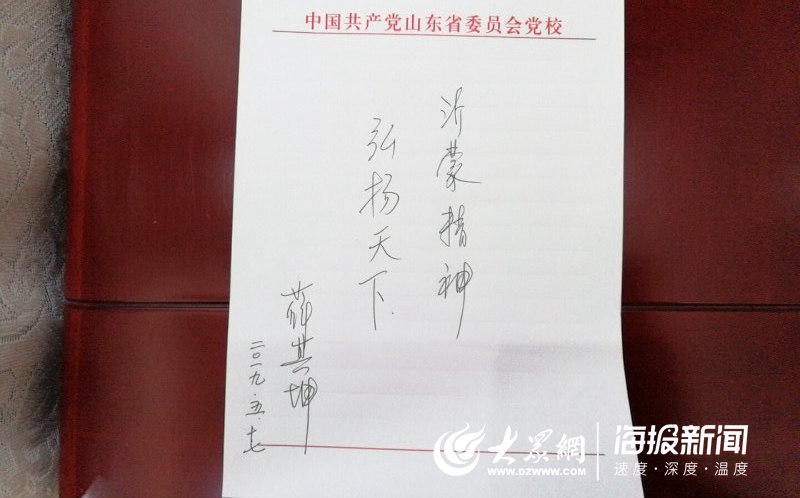 中国共产党山东省委员会党校
沂蒙精神
弘扬天下
薛其坤
二〇一九.五.十七
大众網
WWW.DZWWW.COM
海报新闻
速度·深度·温度